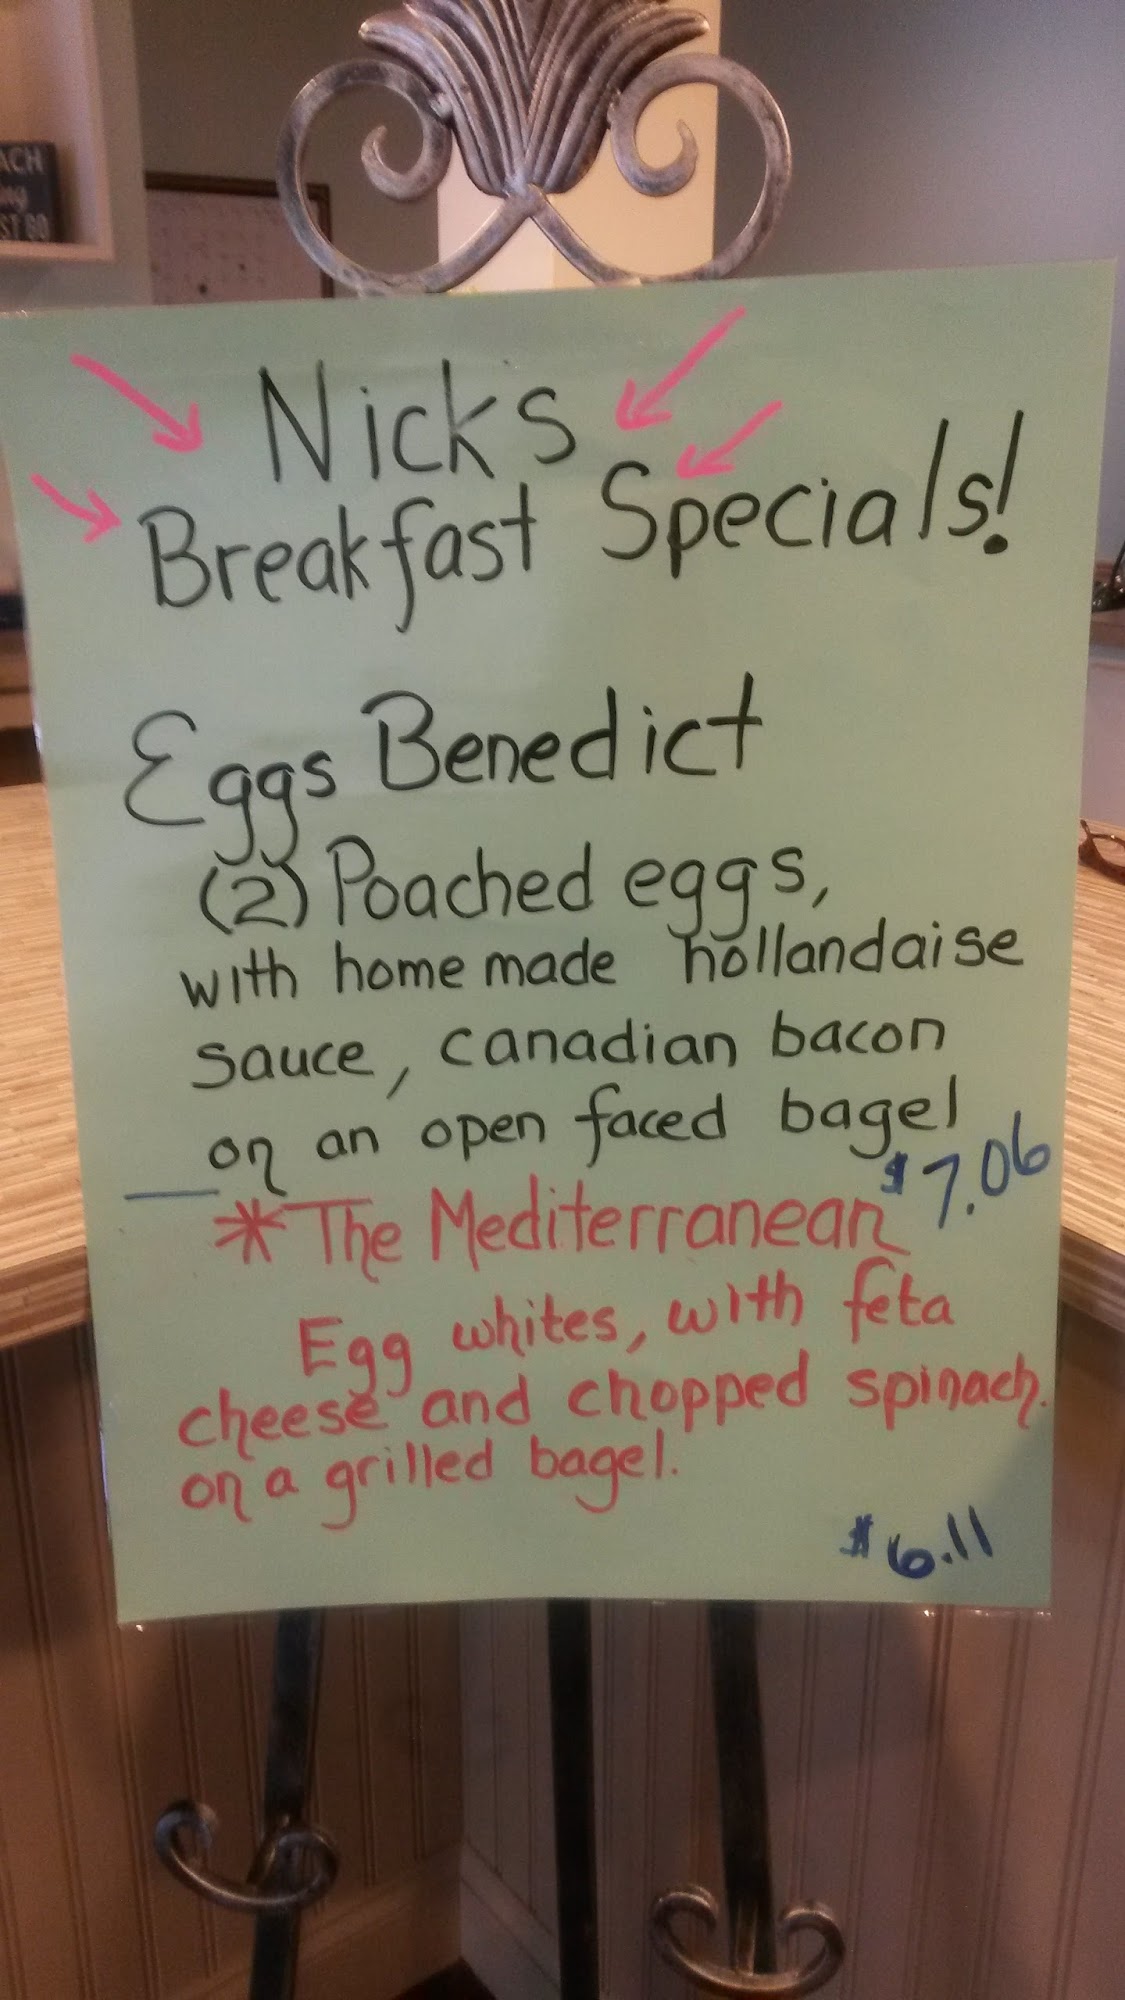 ACH
ST GO
Nicks
Breakfast Specials!
Eggs Benedict
(2) Poached eggs,
with home made hollandaise
sauce, canadian bacon
on an open faced bagel
$7.06
* The Mediterranean
Egg whites, with feta
cheese and chopped spinach.
on a grilled bagel.
$6.11